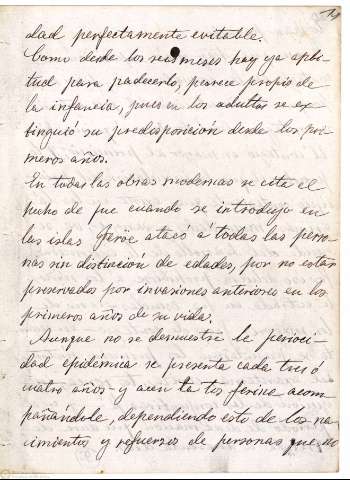 14
dad perfectamente evitable.
Como desde los seis meses hay ya apti-
tud para padecerlo, parece propio de
la infancia, pues en los adultos se ex-
tinguió su predisposición desde los pri-
meros años.
En todas las obras modernas se cita el
hecho de que cuando se introdujo en
las islas Feröe atacó a todas las perso-
nas sin distinción de edades, por no estar
preservados por invasiones anteriores en los
primeros años de su vida.
Aunque no se demuestre le perioci-
dad epidémica se presenta cada tres ó
cuatro años - y aun la tos ferina acom
pañándole, dependiendo esto de los na-
cimientos y refuerzos de personas que no